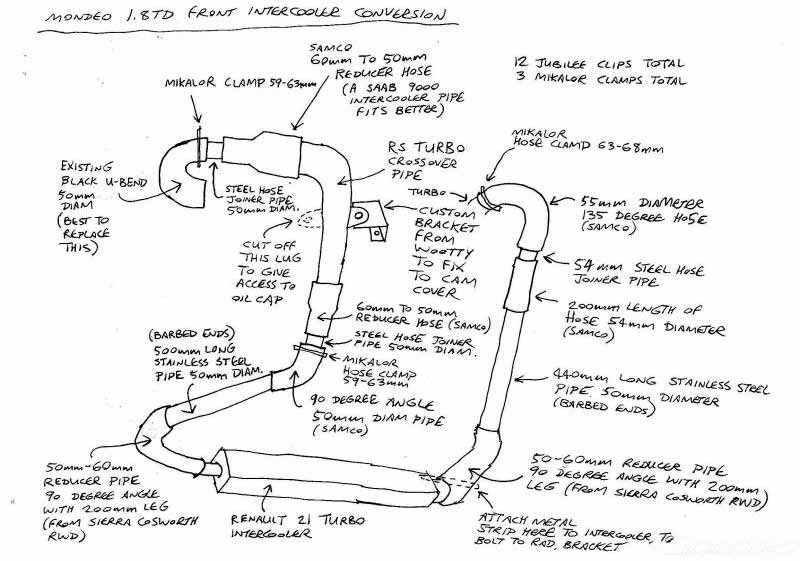 MONDEO 1.8TD FRONT INTERCOOLER CONVERSION
SAMCO
60mm TO 50mm
REDUCER HOSE
(A SAAB 9000
INTERCOOLER PIPE
FITS BETTER)
12 JUBILEE CLIPS TOTAL
3 MIKALOR CLAMPS TOTAL
MIKALOR CLAMP 59-63mm
MIKALOR
HOSE CLAMP 63-68mm
RS TURBO
CROSSOVER
PIPE
EXISTING
BLACK U-BEND
50mm
DIAM
(BEST TO
REPLACE
THIS)
STEEL HOSE
JOINER PIPE
50mm DIAM.
TURBO
55mm DIAMETER
135 DEGREE HOSE
(SAMCO)
CUSTOM
BRACKET
FROM
WOOTTY
TO FIX
TO CAM
COVER
CUT OFF
THIS LUG
TO GIVE
ACCESS TO
OIL CAP
54mm STEEL HOSE
JOINER PIPE
200mm LENGTH OF
HOSE 54mm DIAMETER
(SAMCO)
60mm TO 50mm
REDUCER HOSE (SAMCO)
STEEL HOSE JOINER
PIPE 50mm DIAM.
(BARBED ENDS)
500mm LONG
STAINLESS STEEL
PIPE 50mm DIAM.
MIKALOR
HOSE CLAMP
59-63mm
440mm LONG STAINLESS STEEL
PIPE. 50mm DIAMETER
(BARBED ENDS)
90 DEGREE ANGLE
50mm DIAM PIPE
(SAMCO)
50mm-60mm
REDUCER PIPE
90 DEGREE ANGLE
WITH 200mm LEG
(FROM SIERRA COSWORTH
RWD)
50-60mm REDUCER PIPE
90 DEGREE ANGLE WITH 200mm
LEG (FROM SIERRA COSWORTH RWD)
RENAULT 21 TURBO
INTERCOOLER
ATTACH METAL
STRIP HERE TO INTERCOOLER, TO
BOLT TO RAD. BRACKET